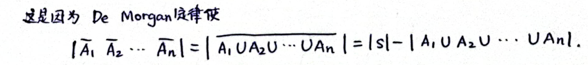 这是因为 De Morgan 定律使
|Ā₁ Ā₂ ⋯ Āₙ| = | \overline{A₁∪A₂∪⋯∪Aₙ} | = |S| − | A₁∪A₂∪⋯∪Aₙ|.